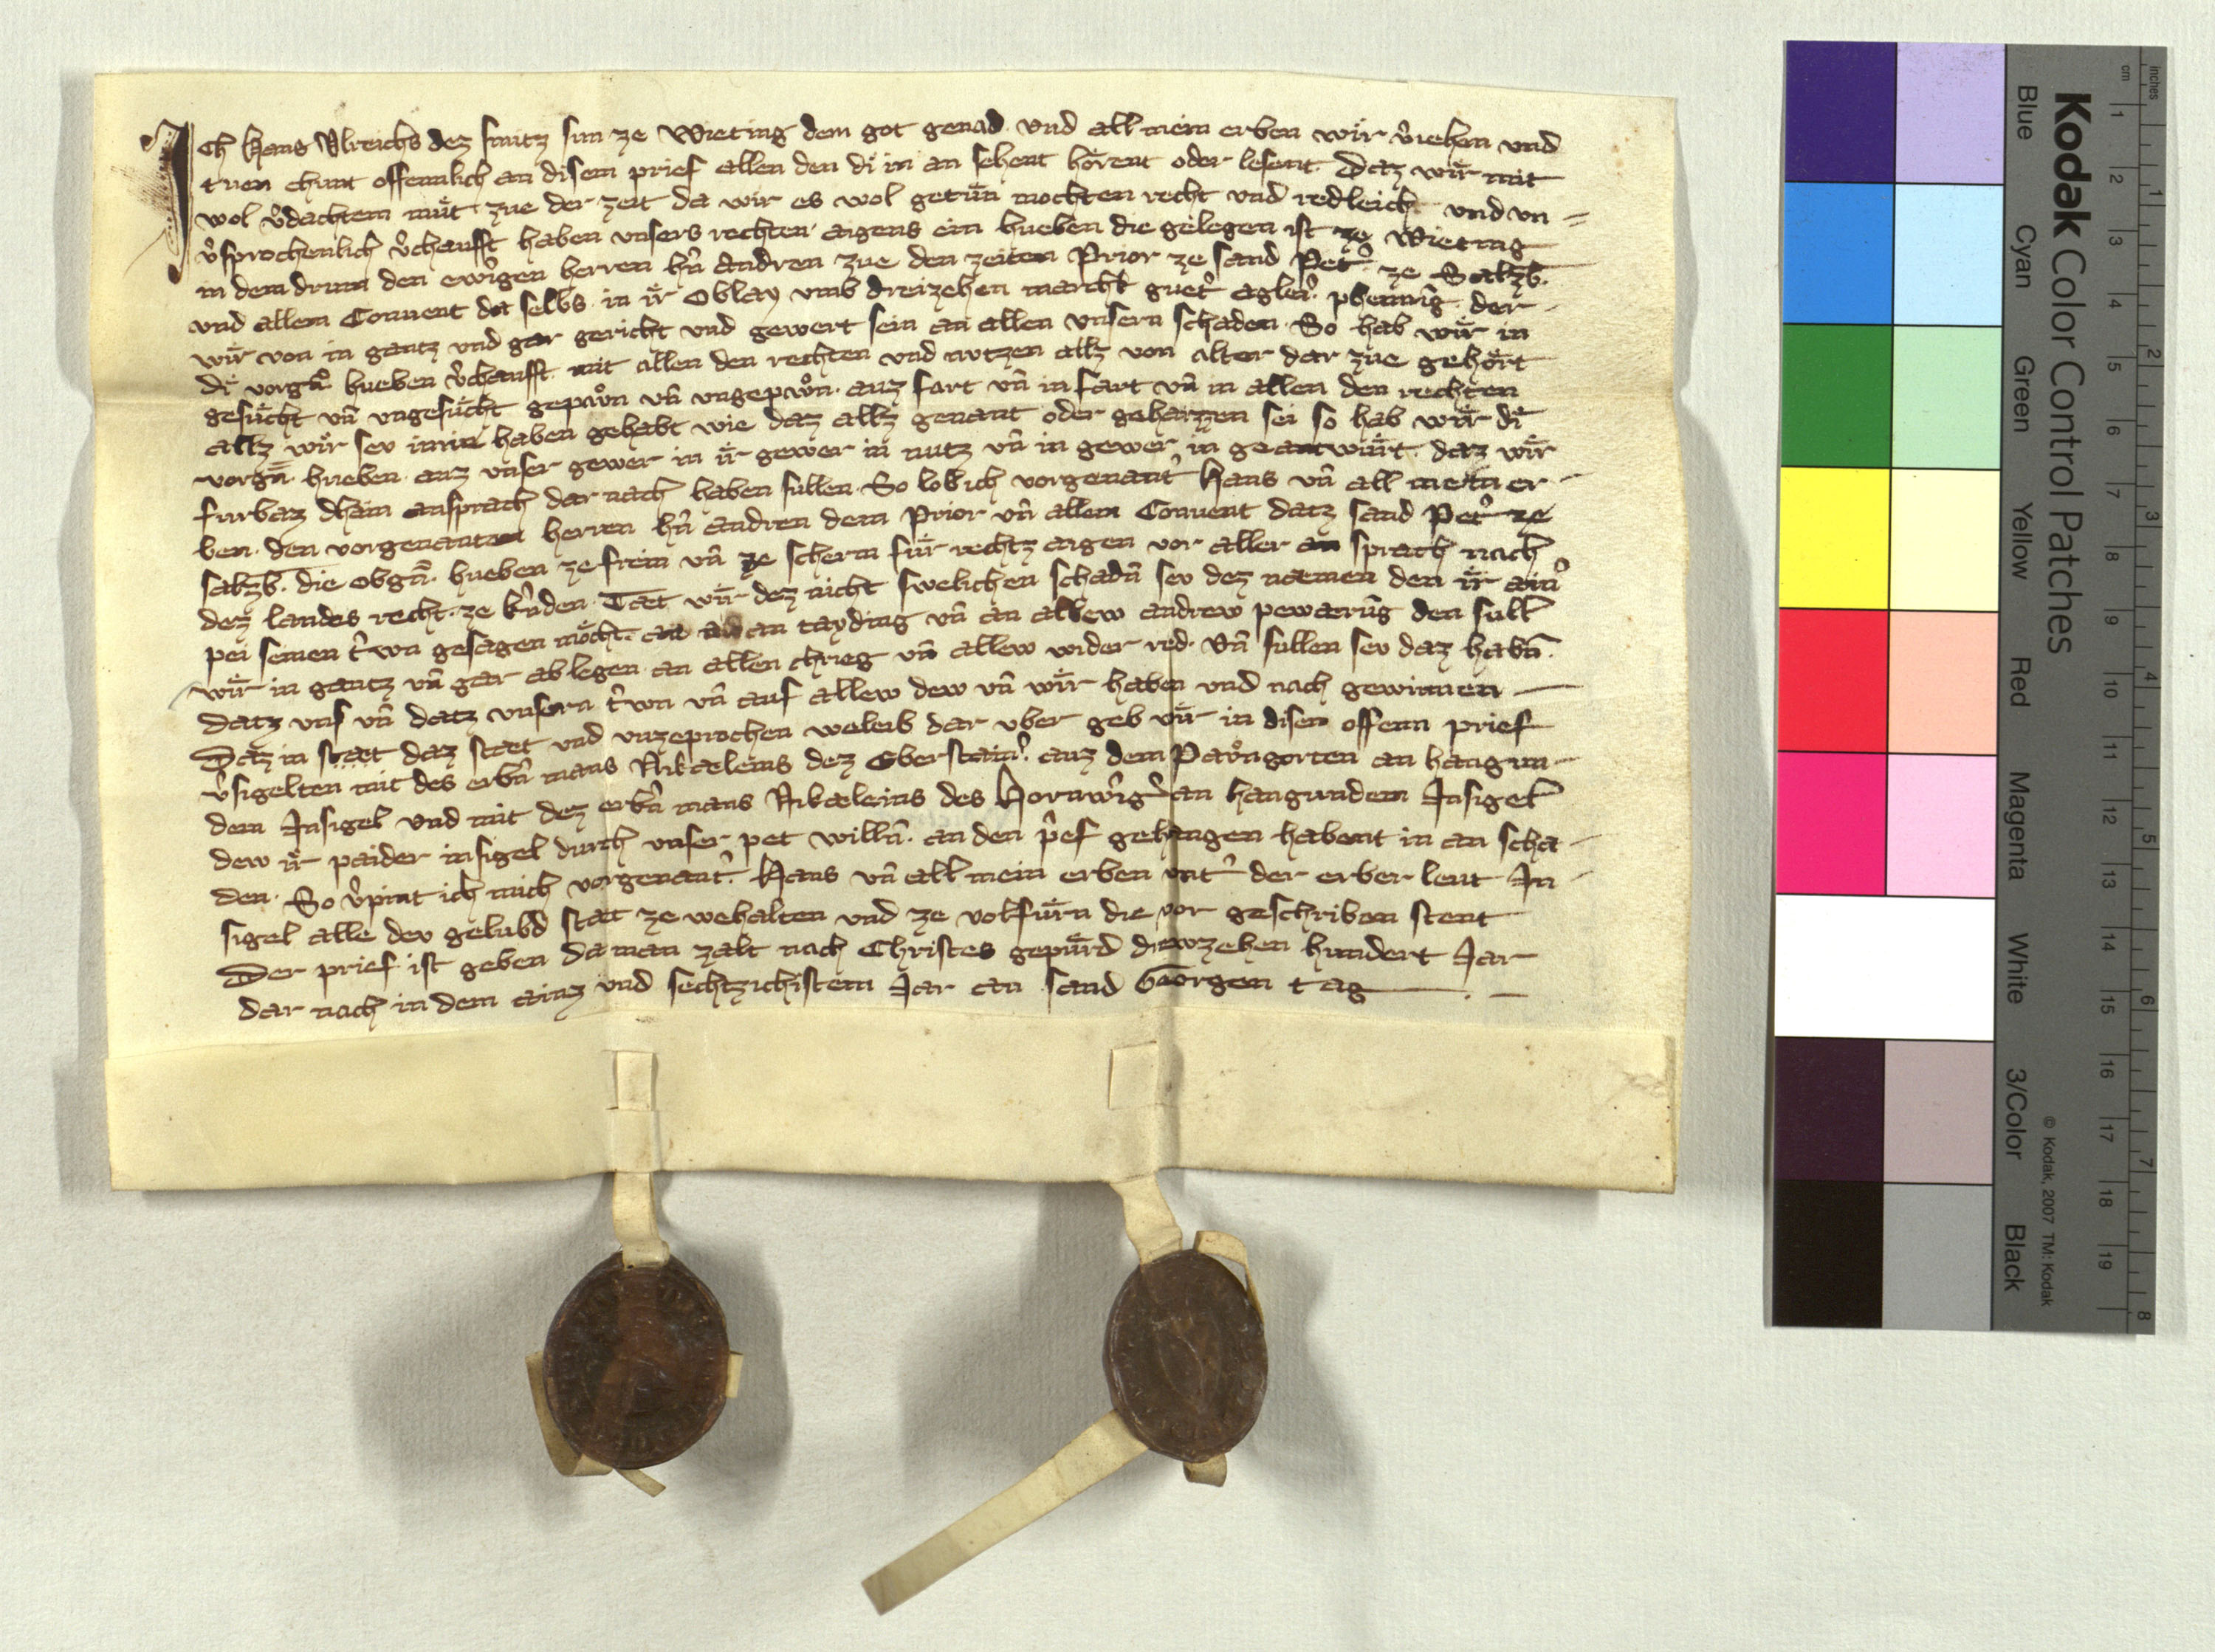 Ich Hans Ulreichs dez smitz sun ze Wieting dem got genad. und all mein erben wir v̂iehen und
tuen chunt offennlich an disem prief allen den di in an sehent hörent oder lesent. Daz wir mit
wol v̂dachtem müt zue der zeit da wir es wol getün mochten recht und redleich und vn=
v̂sprochenlich v̂chaufft haben unsers rechten aigens ein hueben die gelegen ist ze Wieting
in dem drum den ewigen herren hn̄ Andren zue den zeiten Prior ze sand Pet̂ ze Salzb.
und allem Convent da selbs in ir Oblay umb dreizehen march guet̂ aglei̇̂. phennig. der
wir von in gantz und gar gericht und gewert sein an allen unsern schaden. So hab wir in
di vorgn̄ hueben v̂chaufft mit allen den rechten und nutzen allz von alter dar zue gehört
gesücht vn̄ ungesücht gepown vn̄ ungepown. auz fart vn̄ in fart vn̄ in allen den rechten
allz wir sev inne haben gehabt wie daz allz genant oder gehaizzen sei so hab wir di
vorgn̄. hueben auz unser gewer in ir gewer in nutz vn̄ in gewer in geantwürt. daz wir
furbaz dhain ansprach dar nach haben sullen. So lob ich vorgenant̂ Hans vn̄ all mein er=
ben. den vorgenanten herren hn̄ andren dem Prior vn̄ allem Convent datz sand Pet̂ ze
salzb. die obgn̄. hueben ze frein vn̄ ze scherm für rechtz aigen vor aller an sprach nach
dez landes recht. ze kn̂den. Taet wir dez nicht swelichen schadn̄ sev dez naemen den ir ain̂
pei seinen t̂wn gesagen möcht. an aid an tayding vn̄ an allew andrew pewaerūg den sull
wir in gantz vn̄ gar ablegen an allen chrieg vn̄ allew wider red. Vn̄ sullen sev daz habn̄.
datz uns vn̄ datz unsern t̂wn vn̄ auf allew dew vn̄ wir haben und nach gewinnen
Datz in staet daz staet und unzeprochen weleib dar uber geb wir in disen offenn prief
v̂sigelten mit des erbn̄ mans Nikaeleins dez Eberstain̂. auz dem Pawngarten an hangun=
dem Insigel und mit dez erbn̄ mans Nikaeleins des Hornwiĝ an hangundem Insigel
dew ir paider insigel durch unser pet willn̄. an den p̂ef gehangen habent in an scha=
den. So v̂pint ich mich vorgenant̂. Hans vn̄ all mein erben unt̂ der erber leut In=
sigel alle dev gelubd staet ze wehalten und ze volfürn die vor geschriben stent
Der prief ist geben da man zalt nach Christes gepürd drewzehen hundert Jar
dar nach in dem ainz und sechtzichistem Jar an sand Georgen tag
Kodak Color Control Patches
Blue Cyan Green Yellow Red Magenta White 3/Color Black
© Kodak, 2007 TM: Kodak
cm 1 2 3 4 5 6 7 8 9 10 11 12 13 14 15 16 17 18 19
inches 1 2 3 4 5 6 7 8